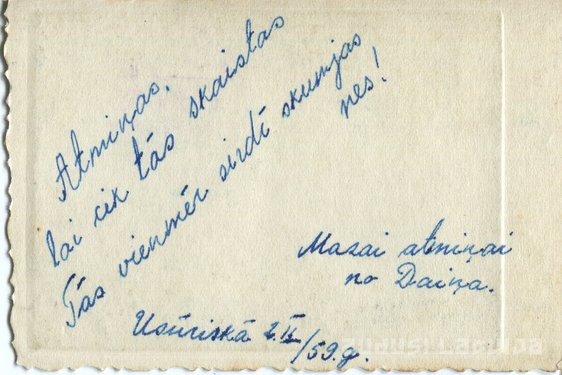 Atmiņas,
lai cik tās skaistas
Tās vienmēr sirdī skumjas
nes!
Mazai atmiņai
no Daiņa.
Usūriskā 2.II/59.g.